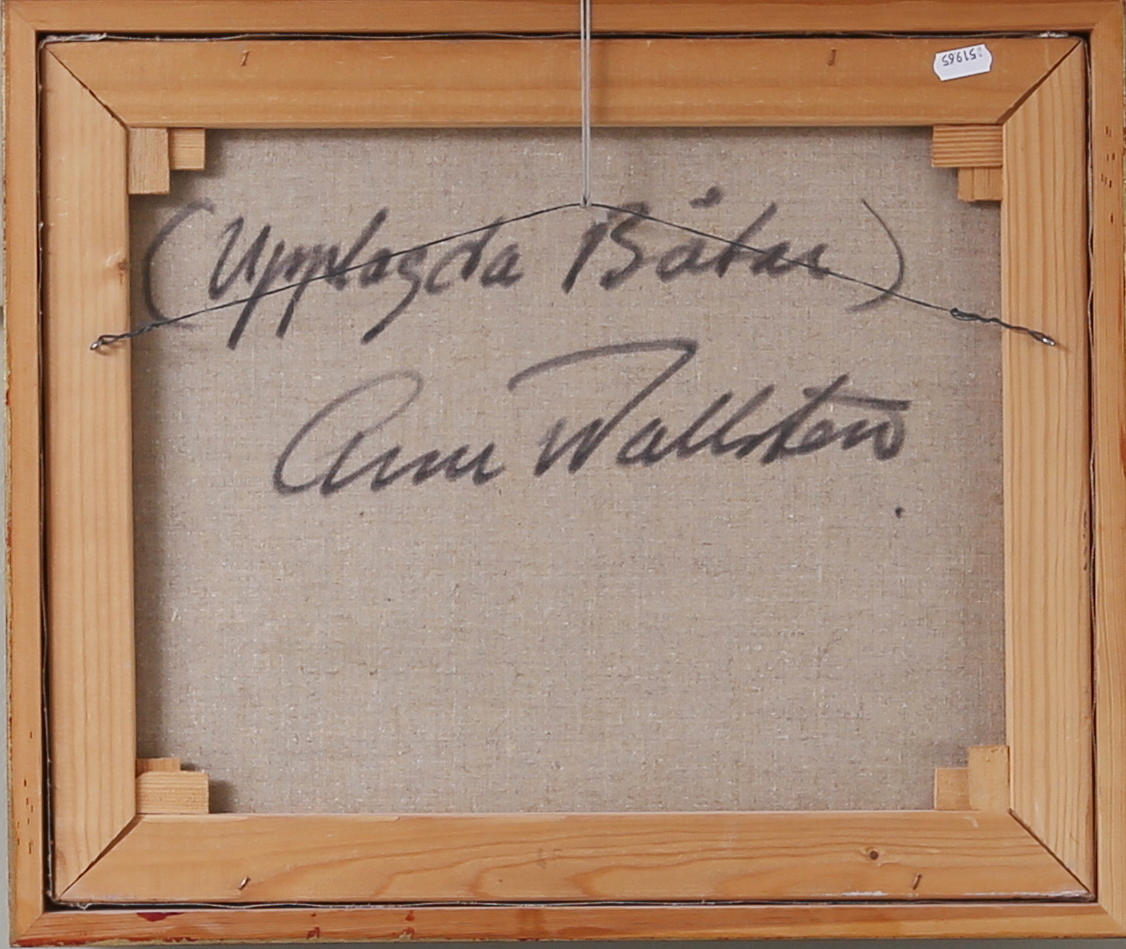 (Upplagda Båtar)
Arne Wallsten
51965